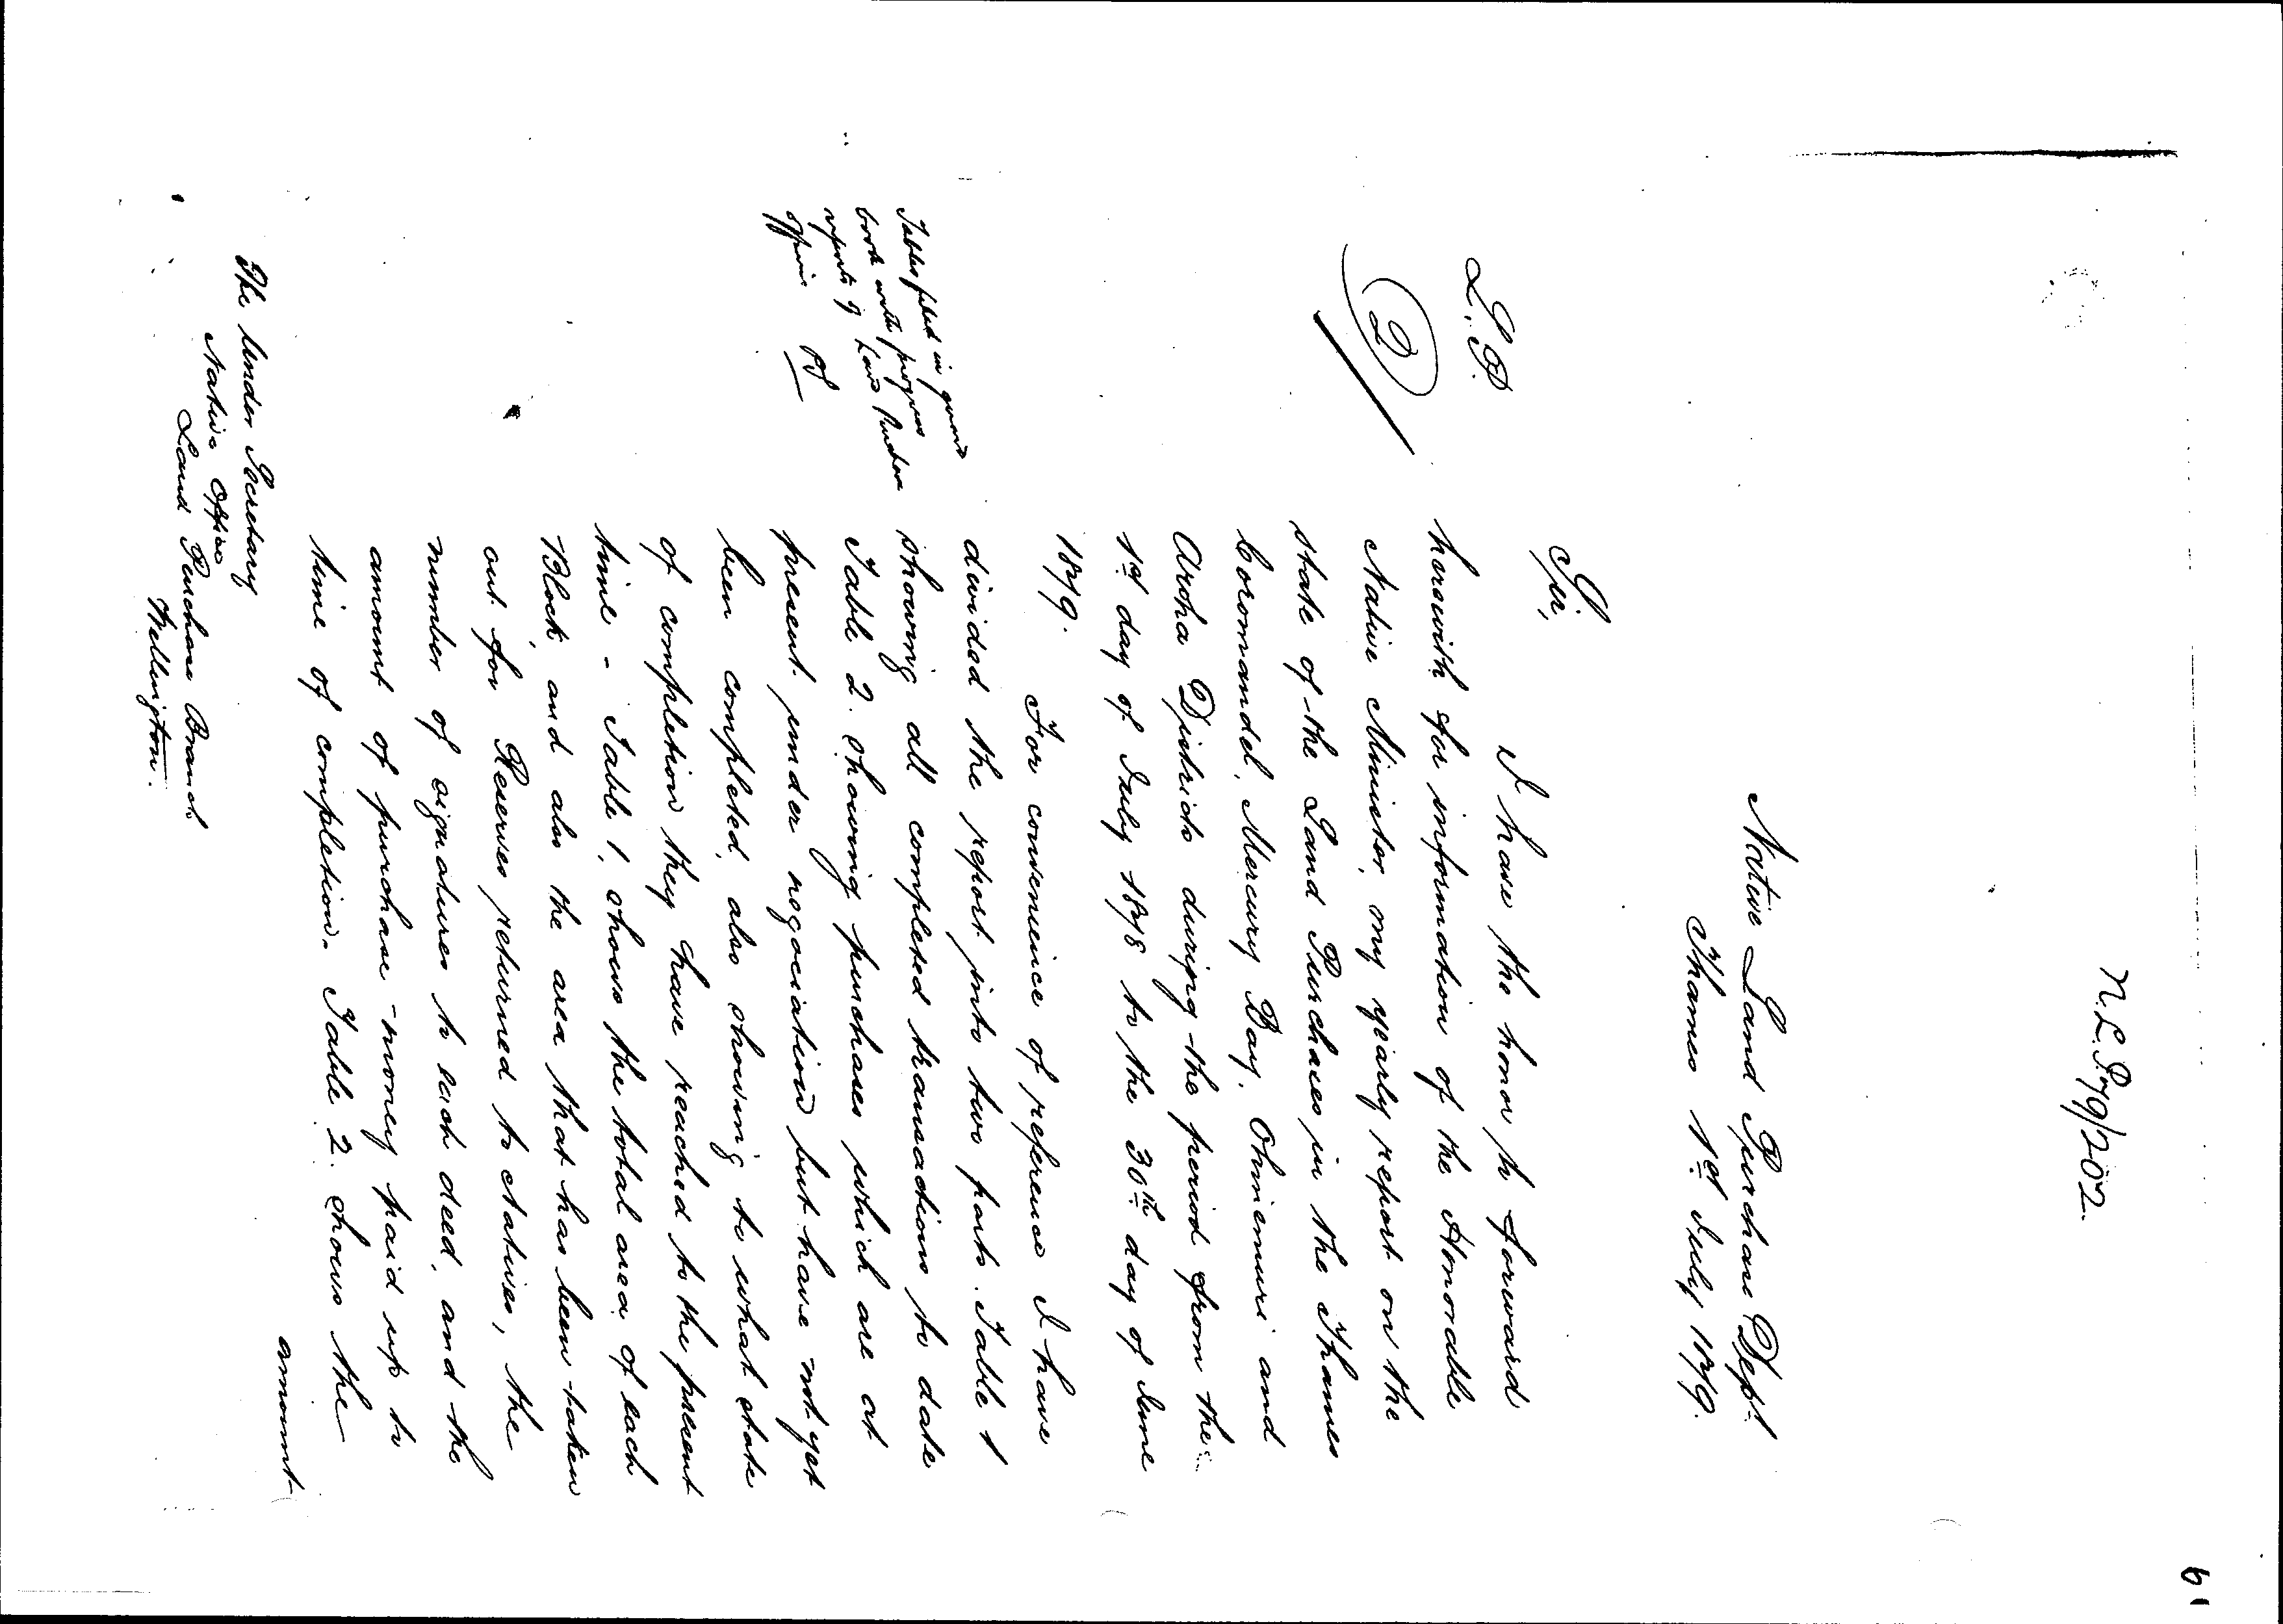 N.L.P 79/202.
Native Land Purchase Dept.
Thames 1st July 1879.
L.P.
2
Sir,
I have the honor to forward
herewith for information of the Honorable
Native Minister, my yearly report on the
state of the Land Purchases in the Thames
Coromandel, Mercury Bay, Ohinemuri and
Aroha Districts during the period from the
1st day of July 1878 to the 30th day of June
1879.
For convenience of reference I have
divided the report into two parts. Table 1
showing all completed transactions to date
Table 2. showing purchases which are at
present under negociation but have not yet
been completed, also showing to what state
of completion they have reached to the present
time - Table 1, shows the total area of each
Block, and also the area that has been taken
out for Reserves returned to Natives, the
number of signatures to each deed, and the
amount of purchase-money paid up to
time of completion. Table 2. shows the
amount
Tables filed in guard
book with progress
reports of Land Purchase
Officers
The Under Secretary
Native Office
Land Purchase Branch
Wellington.